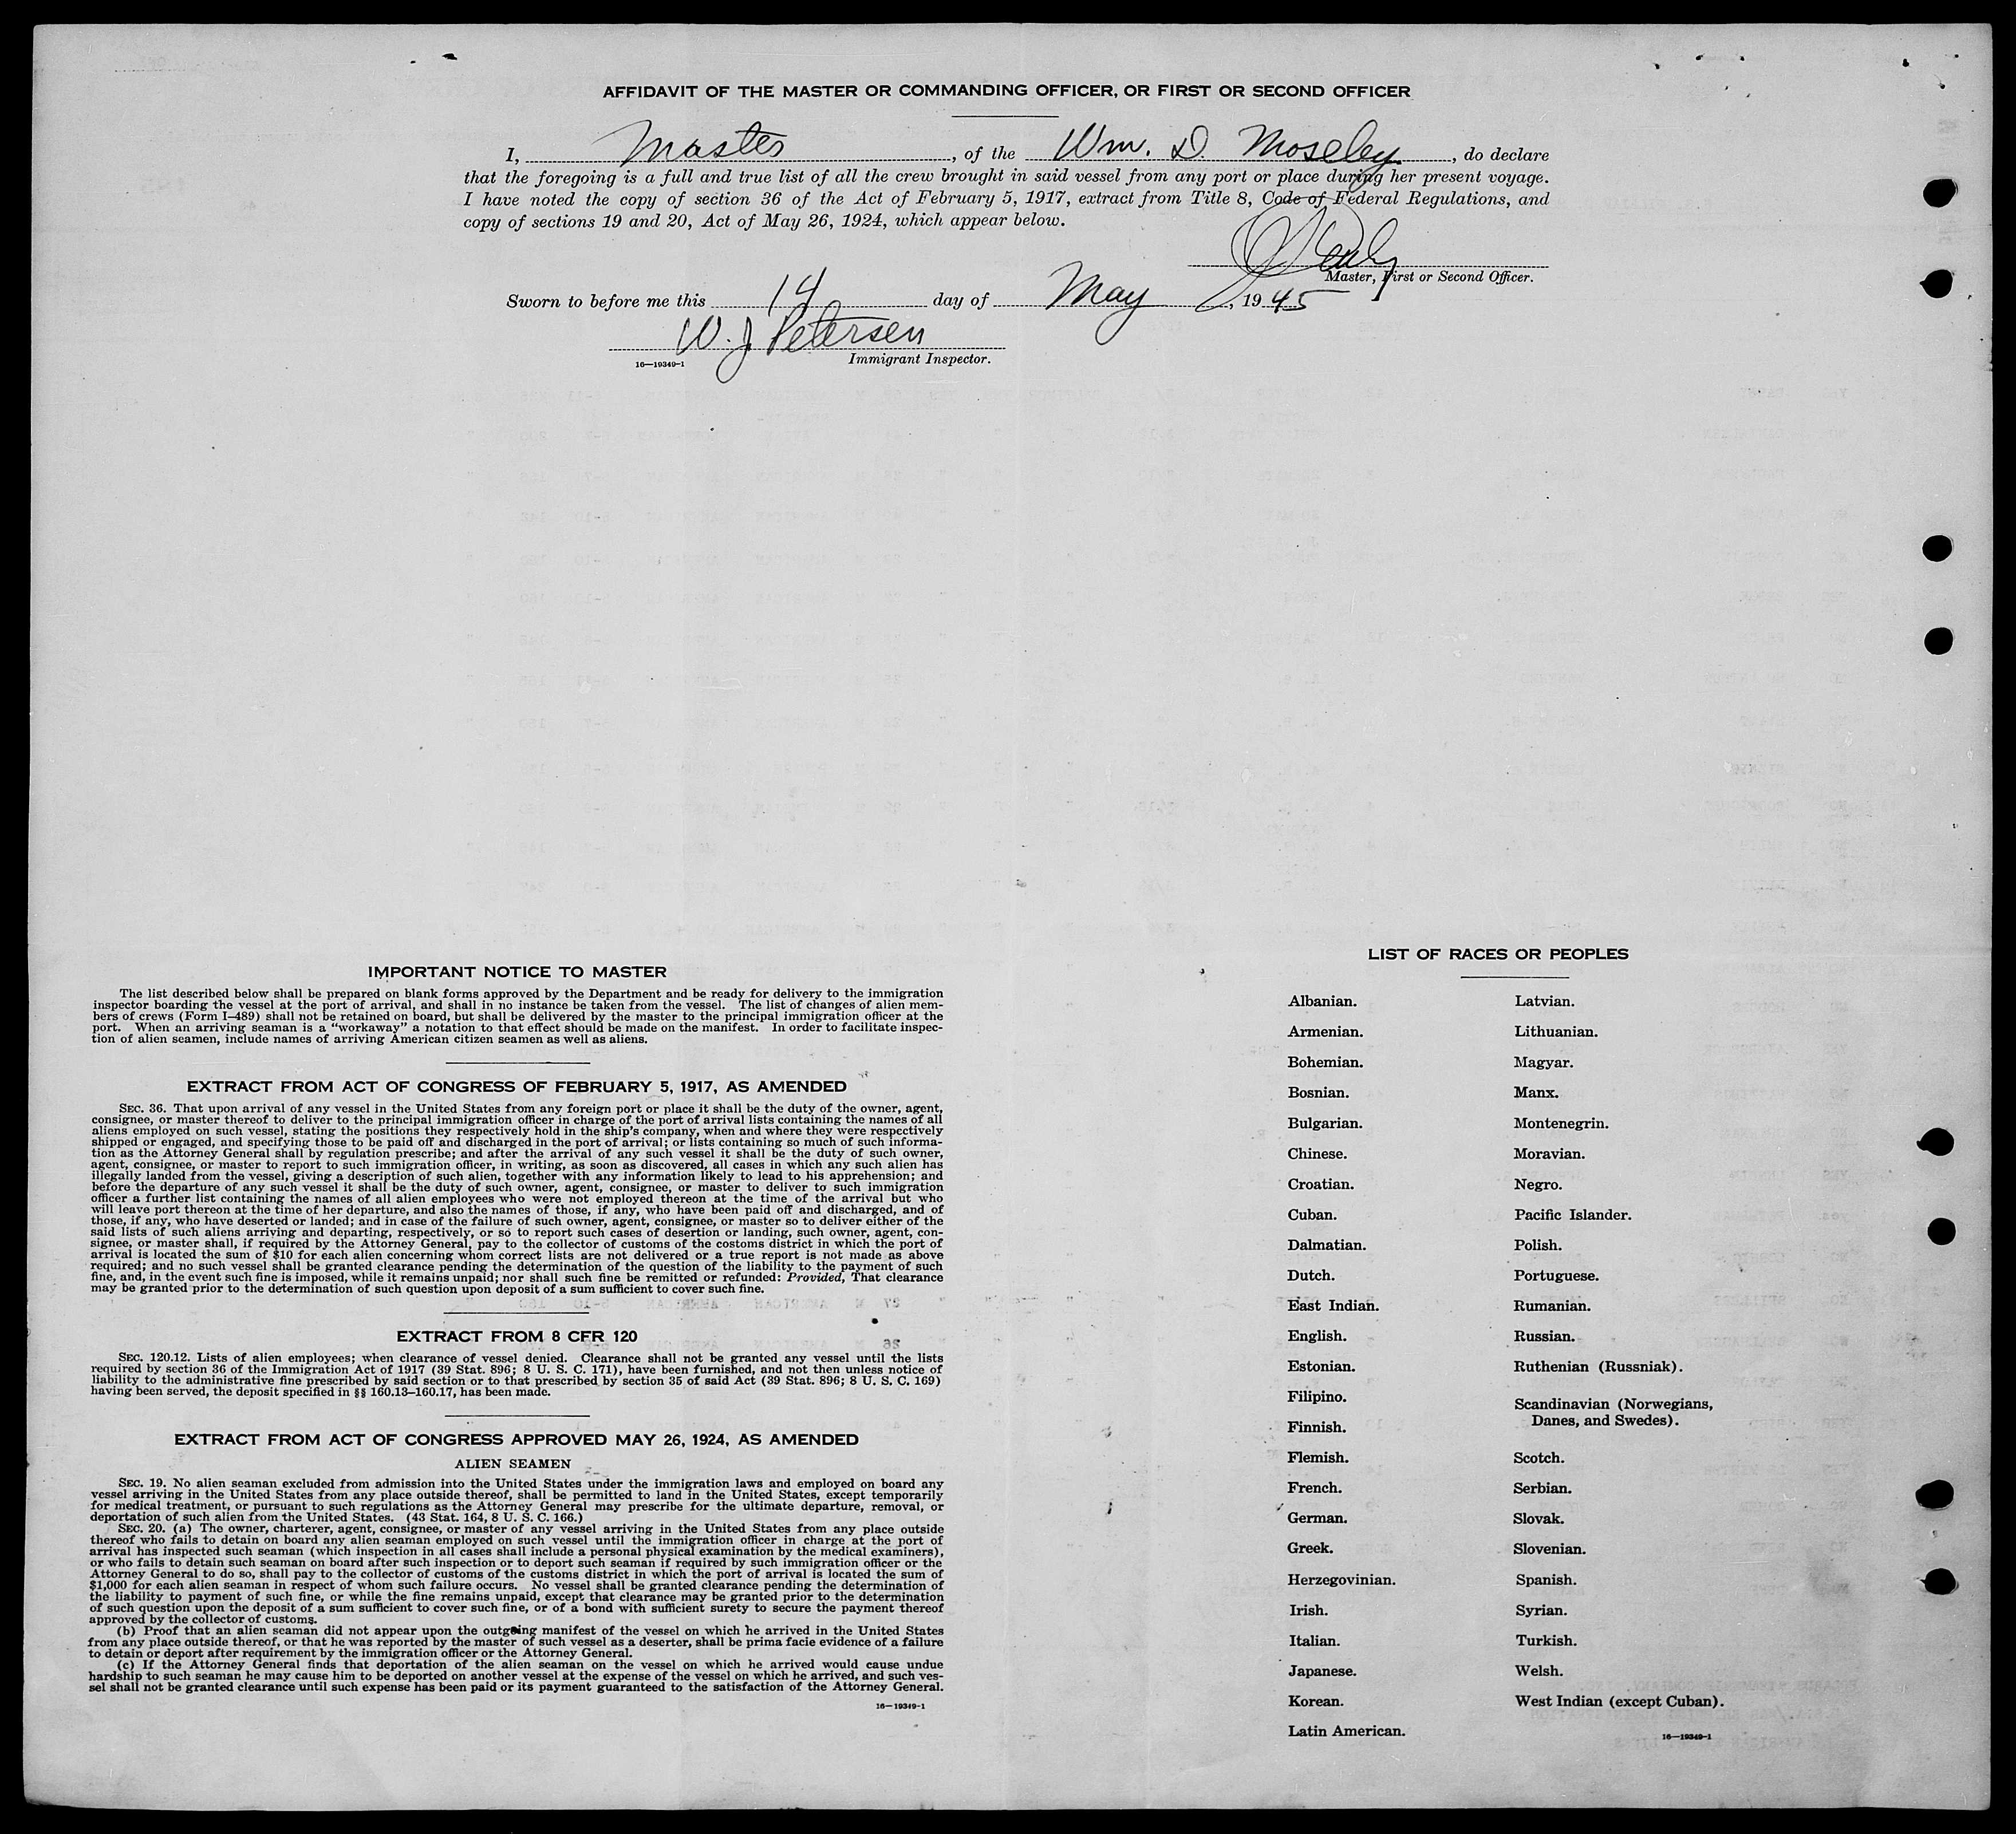 AFFIDAVIT OF THE MASTER OR COMMANDING OFFICER, OR FIRST OR SECOND OFFICER
I, Master, of the Wm. D. Moseley, do declare
that the foregoing is a full and true list of all the crew brought in said vessel from any port or place during her present voyage.
I have noted the copy of section 36 of the Act of February 5, 1917, extract from Title 8, Code of Federal Regulations, and
copy of sections 19 and 20, Act of May 26, 1924, which appear below.
Master, First or Second Officer.
Sworn to before me this 14 day of May, 1945
W. J. Petersen
16—19349-1 Immigrant Inspector.
IMPORTANT NOTICE TO MASTER
The list described below shall be prepared on blank forms approved by the Department and be ready for delivery to the immigration
inspector boarding the vessel at the port of arrival, and shall in no instance be taken from the vessel. The list of changes of alien mem-
bers of crews (Form I-489) shall not be retained on board, but shall be delivered by the master to the principal immigration officer at the
port. When an arriving seaman is a "workaway" a notation to that effect should be made on the manifest. In order to facilitate inspec-
tion of alien seamen, include names of arriving American citizen seamen as well as aliens.
EXTRACT FROM ACT OF CONGRESS OF FEBRUARY 5, 1917, AS AMENDED
SEC. 36. That upon arrival of any vessel in the United States from any foreign port or place it shall be the duty of the owner, agent,
consignee, or master thereof to deliver to the principal immigration officer in charge of the port of arrival lists containing the names of all
aliens employed on such vessel, stating the positions they respectively hold in the ship's company, when and where they were respcctively
shipped or engaged, and specifying those to be paid off and discharged in the port of arrival; or lists containing so much of such informa-
tion as the Attorney General shall by regulation prescribe; and after the arrival of any such vessel it shall be the duty of such owner,
agent, consignee, or master to report to such immigration officer, in writing, as soon as discovered, all cases in which any such alien has
illegally landed from the vessel, giving a description of such alien, together with any information likely to lead to his apprehension; and
before the departure of any such vessel it shall be the duty of such owner, agent, consignee, or master to deliver to such immigration
officer a further list containing the names of all alien employees who were not employed thereon at the time of the arrival but who
will leave port thereon at the time of her departure, and also the names of those, if any, who have been paid off and discharged, and of
those, if any, who have deserted or landed; and in case of the failure of such owner, agent, consignee, or master so to deliver either of the
said lists of such aliens arriving and departing, respectively, or so to report such cases of desertion or landing, such owner, agent, con-
signee, or master shall, if required by the Attorney General, pay to the collector of customs of the costoms district in which the port of
arrival is located the sum of $10 for each alien concerning whom correct lists are not delivered or a true report is not made as above
required; and no such vessel shall be granted clearance pending the determination of the question of the liability to the payment of such
fine, and, in the event such fine is imposed, while it remains unpaid; nor shall such fine be remitted or refunded: Provided, That clearance
may be granted prior to the determination of such question upon deposit of a sum sufficient to cover such fine.
EXTRACT FROM 8 CFR 120
SEC. 120.12. Lists of alien employees; when clearance of vessel denied. Clearance shall not be granted any vessel until the lists
required by section 36 of the Immigration Act of 1917 (39 Stat. 896; 8 U. S. C. 171), have been furnished, and not then unless notice of
liability to the administrative fine prescribed by said section or to that prescribed by section 35 of said Act (39 Stat. 896; 8 U. S. C. 169)
having been served, the deposit specified in §§ 160.13–160.17, has been made.
EXTRACT FROM ACT OF CONGRESS APPROVED MAY 26, 1924, AS AMENDED
ALIEN SEAMEN
SEC. 19. No alien seaman excluded from admission into the United States under the immigration laws and employed on board any
vessel arriving in the United States from any place outside thereof, shall be permitted to land in the United States, except temporarily
for medical treatment, or pursuant to such regulations as the Attorney General may prescribe for the ultimate departure, removal, or
deportation of such alien from the United States. (43 Stat. 164, 8 U. S. C. 166.)
SEC. 20. (a) The owner, charterer, agent, consignee, or master of any vessel arriving in the United States from any place outside
thereof who fails to detain on board any alien seaman employed on such vessel until the immigration officer in charge at the port of
arrival has inspected such seaman (which inspection in all cases shall include a personal physical examination by the medical examiners),
or who fails to detain such seaman on board after such inspection or to deport such seaman if required by such immigration officer or the
Attorney General to do so, shall pay to the collector of customs of the customs district in which the port of arrival is located the sum of
$1,000 for each alien seaman in respect of whom such failure occurs. No vessel shall be granted clearance pending the determination of
the liability to payment of such fine, or while the fine remains unpaid, except that clearance may be granted prior to the determination
of such question upon the deposit of a sum sufficient to cover such fine, or of a bond with sufficient surety to secure the payment thereof
approved by the collector of customs.
(b) Proof that an alien seaman did not appear upon the outgoing manifest of the vessel on which he arrived in the United States
from any place outside thereof, or that he was reported by the master of such vessel as a deserter, shall be prima facie evidence of a failure
to detain or deport after requirement by the immigration officer or the Attorney General.
(c) If the Attorney General finds that deportation of the alien seaman on the vessel on which he arrived would cause undue
hardship to such seaman he may cause him to be deported on another vessel at the expense of the vessel on which he arrived, and such ves-
sel shall not be granted clearance until such expense has been paid or its payment guaranteed to the satisfaction of the Attorney General.
16—19349-1
LIST OF RACES OR PEOPLES
Albanian.
Armenian.
Bohemian.
Bosnian.
Bulgarian.
Chinese.
Croatian.
Cuban.
Dalmatian.
Dutch.
East Indian.
English.
Estonian.
Filipino.
Finnish.
Flemish.
French.
German.
Greek.
Herzegovinian.
Irish.
Italian.
Japanese.
Korean.
Latin American.
Latvian.
Lithuanian.
Magyar.
Manx.
Montenegrin.
Moravian.
Negro.
Pacific Islander.
Polish.
Portuguese.
Rumanian.
Russian.
Ruthenian (Russniak).
Scandinavian (Norwegians,
Danes, and Swedes).
Scotch.
Serbian.
Slovak.
Slovenian.
Spanish.
Syrian.
Turkish.
Welsh.
West Indian (except Cuban).
16—19349-1